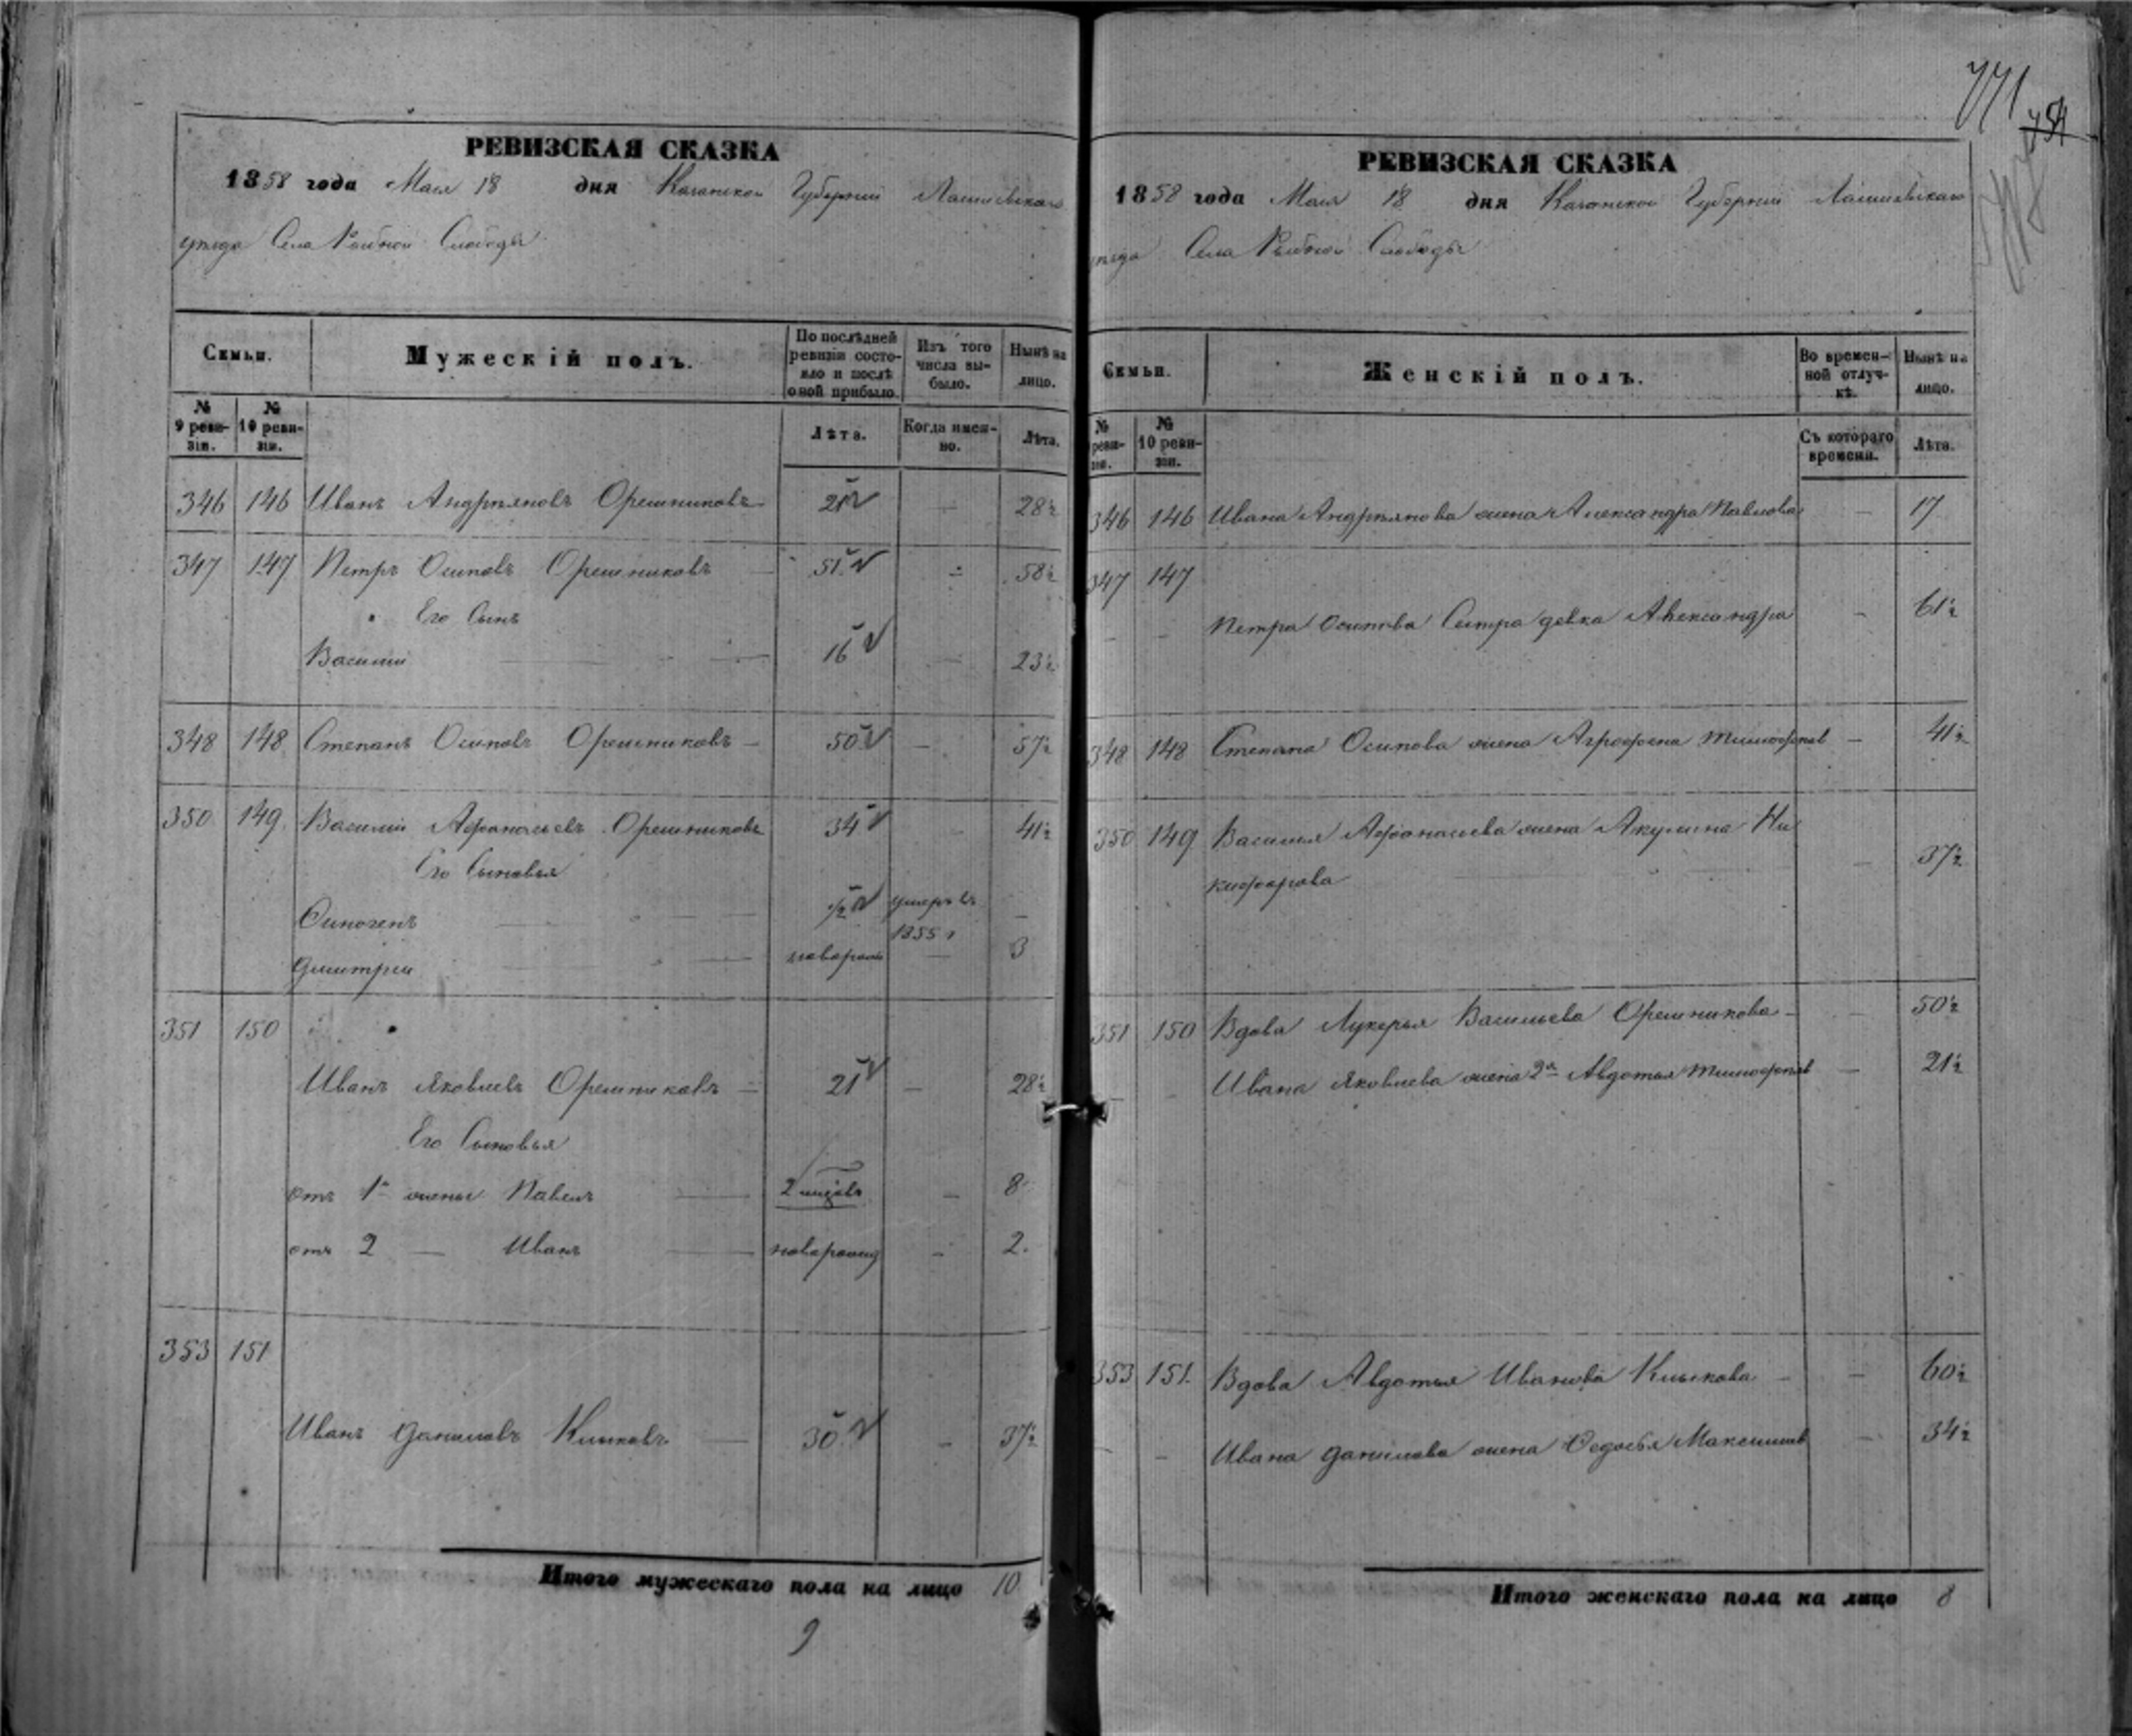 РЕВИЗСКАЯ СКАЗКА
1858 года Мая 18 дня Казанской Губернии Лаишевскаго
уезда Села Рыбной Слободы
Семьи.
Мужескій полъ.
По послѣдней ревизіи состояло и послѣ оной прибыло
Изъ того числа выбыло.
Нынѣ на лицо.
№ 9 ревизіи.
№ 10 ревизіи.
Лѣта.
Когда именно.
Лѣта.
346 146 Иванъ Андреяновъ Орешниковъ 21 — 28½
347 147 Петръ Осиповъ Орешниковъ — 51 — 58½
Его Сынъ
Василий — 16 — 23½
348 148 Степанъ Осиповъ Орешниковъ — 50 — 57½
350 149. Василий Афанасьевъ Орешниковъ 34 — 41½
Его Сыновья
Финогенъ — ½ умеръ въ 1855 г —
Дмитрей — новорож — 3
351 150
Иванъ Яковлевъ Орешниковъ — 21 — 28½
Его Сыновья
отъ 1й жены Павелъ — 2 — 8
отъ 2 — Иванъ — наворожд — 2.
353 151
Иванъ Даниловъ Клыковъ — 30 — 37½
Итого мужескаго пола на лицо 10
9
771
754
РЕВИЗСКАЯ СКАЗКА
1858 года Мая 18 дня Казанской Губернии Лаишевскаго
уезда Села Рыбной Слободы
Семьи.
Женскій полъ.
Во временной отлучкѣ.
Нынѣ на лицо.
№ ревизіи.
№ 10 ревизіи.
Съ котораго времени.
Лѣта.
346 146 Ивана Андреянова жена Александра Павлова — 17
347 147
— — Петра Осипова Сестра девка Александра — 61½
348 148 Степана Осипова жена Агрофена Тимофеев — 41½
350 149 Василья Афонасьева жена Акулина Ни
кифорова — 37½
351 150 Вдова Лукерья Васильева Орешникова — — 50½
— — Ивана Яковлева жена 2я Авдотья Тимофеев — 21½
353 151. Вдова Авдотья Иванова Клыкова — — 60½
— — Ивана Данилова жена Федосья Максимов — 34½
Итого женскаго пола на лицо 8